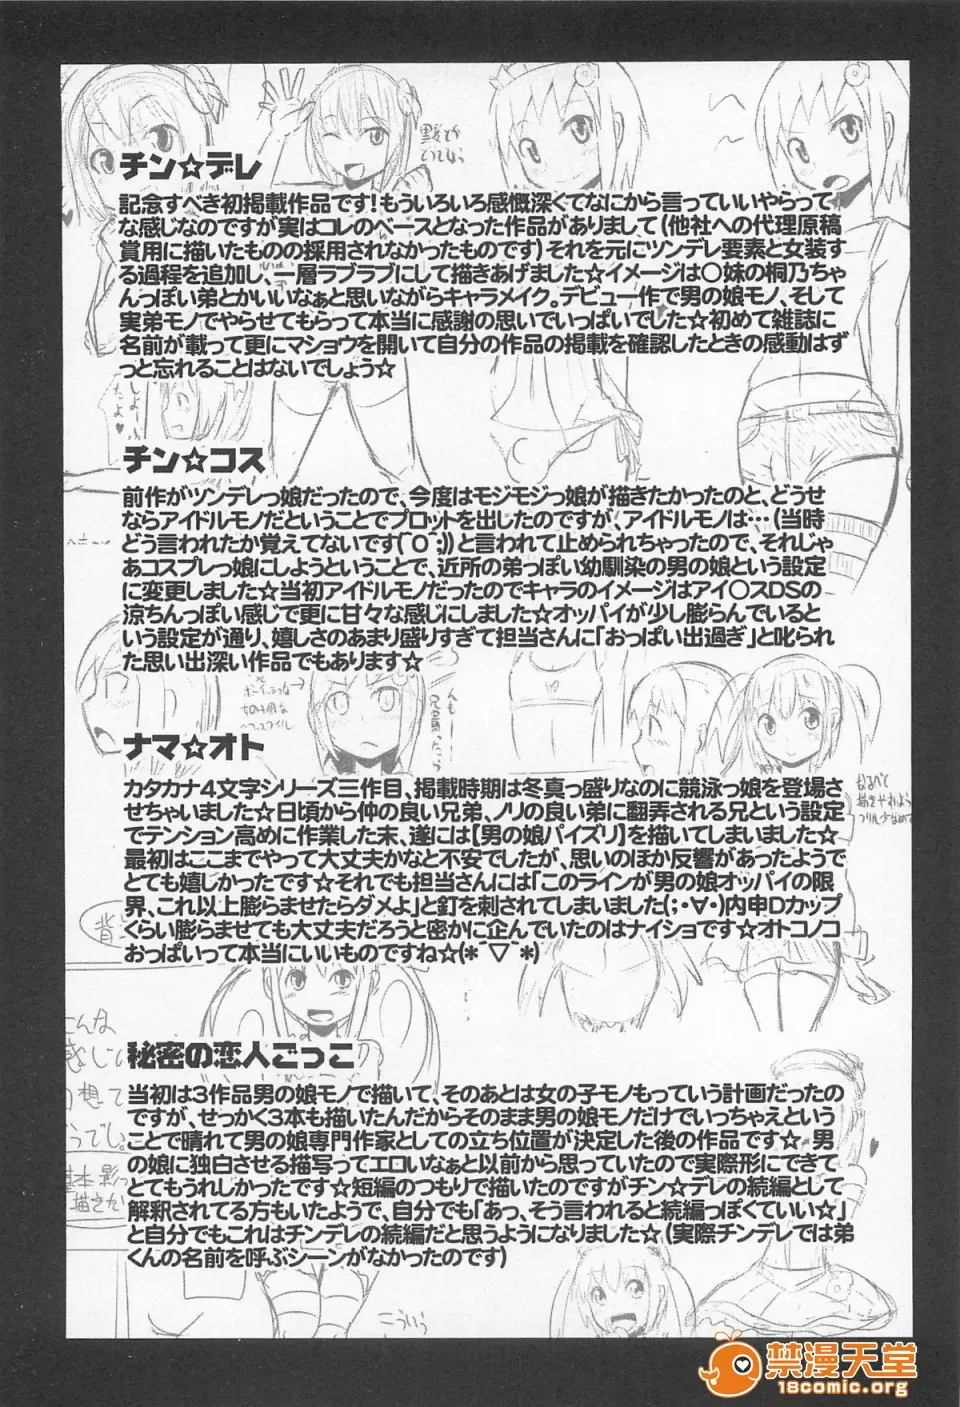 チン☆デレ
記念すべき初掲載作品です！もういろいろ感慨深くてなにから言っていいやらって
な感じなのですが実はコレのベースとなった作品がありまして（他社への代理原稿
賞用に描いたものの採用されなかったものです）それを元にツンデレ要素と女装す
る過程を追加し、一層ラブラブにして描きあげました☆イメージは〇妹の桐乃ちゃ
んっぽい弟とかいいなぁと思いながらキャラメイク。デビュー作で男の娘モノ、そして
実弟モノでやらせてもらって本当に感謝の思いでいっぱいでした☆初めて雑誌に
名前が載って更にマショウを開いて自分の作品の掲載を確認したときの感動はず
っと忘れることはないでしょう☆
チン☆コス
前作がツンデレっ娘だったので、今度はモジモジっ娘が描きたかったのと、どうせ
ならアイドルモノだということでプロットを出したのですが、アイドルモノは…（当時
どう言われたか覚えてないです(^O^;))と言われて止められちゃったので、それじゃ
あコスプレっ娘にしようということで、近所の弟っぽい幼馴染の男の娘という設定
に変更しました☆当初アイドルモノだったのでキャラのイメージはアイ〇スDSの
涼ちんっぽい感じで更に甘々な感じにしました☆オッパイが少し膨らんでいると
いう設定が通り、嬉しさのあまり盛りすぎて担当さんに「おっぱい出過ぎ」と叱られ
た思い出深い作品でもあります☆
ナマ☆オト
カタカナ4文字シリーズ三作目、掲載時期は冬真っ盛りなのに競泳っ娘を登場さ
せちゃいました☆日頃から仲の良い兄弟、ノリの良い弟に翻弄される兄という設定
でテンション高めに作業した末、遂には【男の娘パイズリ】を描いてしまいました☆
最初はここまでやって大丈夫かなと不安でしたが、思いのほか反響があったようで
とても嬉しかったです☆それでも担当さんには「このラインが男の娘オッパイの限
界、これ以上膨らませたらダメよ」と釘を刺されてしまいました(;・∀・)内申Dカップ
くらい膨らませても大丈夫だろうと密かに企んでいたのはナイショです☆オトコノコ
おっぱいって本当にいいものですね☆(*^▽^*)
秘密の恋人ごっこ
当初は3作品男の娘モノで描いて、そのあとは女の子モノもっていう計画だったの
ですが、せっかく3本も描いたんだからそのまま男の娘モノだけでいっちゃえという
ことで晴れて男の娘専門作家としての立ち位置が決定した後の作品です☆男
の娘に独白させる描写ってエロいなぁと以前から思っていたので実際形にできて
とてもうれしかったです☆短編のつもりで描いたのですがチン☆デレの続編として
解釈されてる方もいたようで、自分でも「あっ、そう言われると続編っぽくていい☆」
と自分でもこれはチンデレの続編だと思うようになりました☆（実際チンデレでは弟
くんの名前を呼ぶシーンがなかったのです）
こういう
禁漫天堂
18comic.org